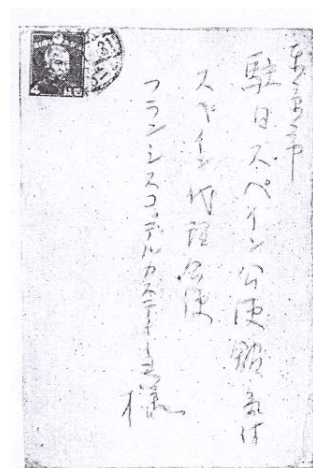 東京市
駐日スペイン公使館気付
スペイン代理公使
フランシスコ・デル・カスティーヨ様
4